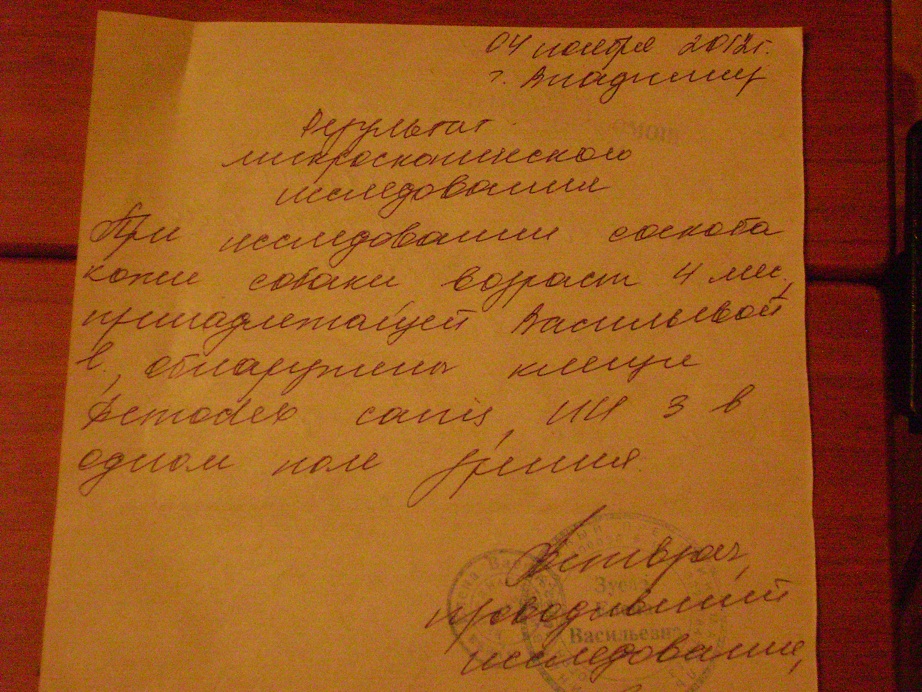 04 ноября 2012г.
г. Владимир
Результат
микроскопического
исследования
При исследовании соскоба
кожи собаки возраст 4 мес,
принадлежащей Васильевой
обнаружены клещи
Demodex canis, ИИ 3 в
одном поле зрения.
Ветврач,
проводивший
исследование,
Васильевна